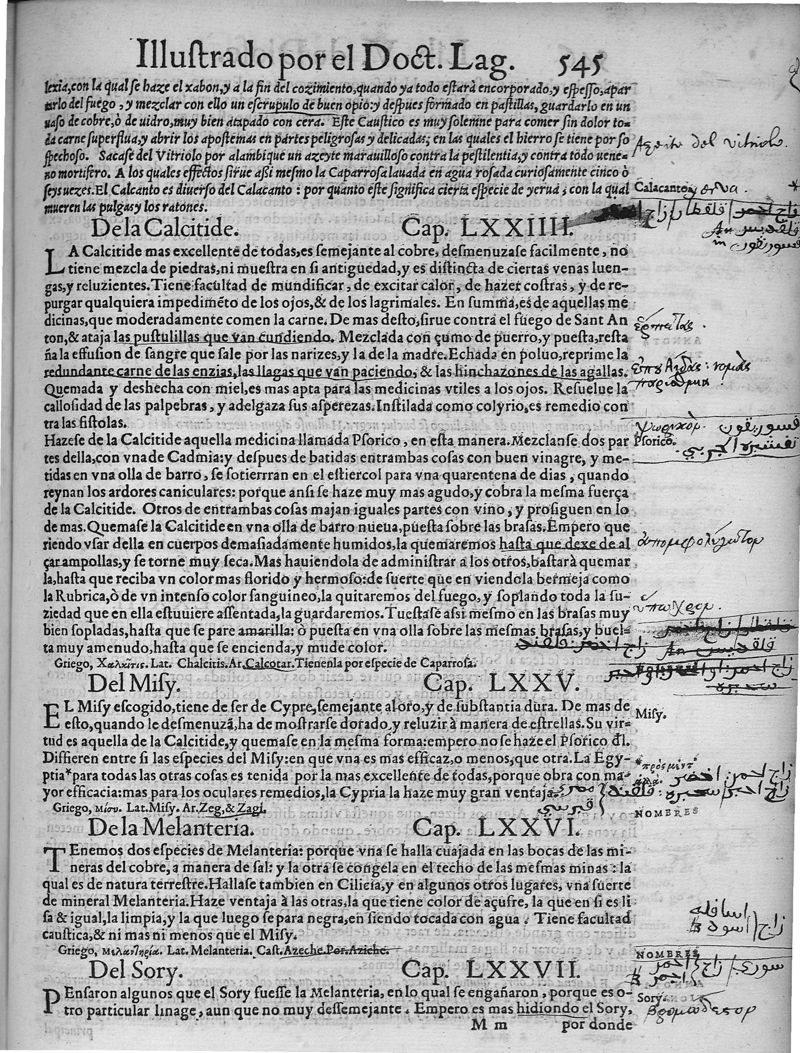 Illustrado por el Doct. Lag. 545
lexia, con la qual se haze el xabon, y a la fin del cozimiento, quando ya todo estarà encorporado, y espesso, apar
tarlo del fuego, y mezclar con ello un escrupulo de buen opio: y despues formado en pastillas, guardarlo en un
vaso de cobre, ò de uidro, muy bien atapado con cera. Este Caustico es muy solemne para comer sin dolor to-
da carne superflua, y abrir los apostemas en partes peligrosas y delicadas; en las quales el hierro se tiene por so
spechoso. Sacase del Vitriolo por alambique un azeyte marauilloso contra la pestilentia, y contra todo uene-
no mortifero. A los quales effectos sirue assi mesmo la Caparrosa lauada en agua rosada curiosamente cinco ò
seys uezes. El Calcanto es diuerso del Calacanto: por quanto este significa cierta especie de yerua, con la qual
mueren las pulgas y los ratones.
Azeite del vitriolo.
Calacanto yerva.
De la Calcitide. Cap. LXXIIII.
LA Calcitide mas excellente de todas, es semejante al cobre, desmenuzase facilmente, no
tiene mezcla de piedras, ni muestra en si antiguedad, y es distincta de ciertas venas luen-
gas, y reluzientes. Tiene facultad de mundificar, de excitar calor, de hazer costras, y de re-
purgar qualquiera impedimẽto de los ojos, & de los lagrimales. En summa, es de aquellas me
dicinas, que moderadamente comen la carne. De mas desto, sirue contra el fuego de Sant An
ton, & ataja las pustulillas que van cundiendo. Mezclada con çumo de puerro, y puesta, resta
ña la effusion de sangre que sale por las narizes, y la de la madre. Echada en poluo, reprime la
redundante carne de las enzias, las llagas que van paciendo, & las hinchazones de las agallas.
Quemada y deshecha con miel, es mas apta para las medicinas vtiles a los ojos. Resuelue la
callosidad de las palpebras, y adelgaza sus asperezas. Instilada como colyrio, es remedio con
tra las fistolas.
Hazese de la Calcitide aquella medicina llamada Psorico, en esta manera. Mezclanse dos par
tes della, con vna de Cadmia: y despues de batidas entrambas cosas con buen vinagre, y me-
tidas en vna olla de barro, se sotierrran en el estiercol para vna quarentena de dias, quando
reynan los ardores caniculares: porque ansi se haze muy mas agudo, y cobra la mesma fuerça
de la Calcitide. Otros de entrambas cosas majan iguales partes con vino, y prosiguen en lo
de mas. Quemase la Calcitide en vna olla de barro nueua, puesta sobre las brasas. Empero que
riendo vsar della en cuerpos demasiadamente humidos, la quemaremos hasta que dexe de al
çar ampollas, y se torne muy seca. Mas hauiendola de administrar a los otros, bastarà quemar
la, hasta que reciba vn color mas florido y hermoso: de suerte que en viendola bermeja como
la Rubrica, ò de vn intenso color sanguineo, la quitaremos del fuego, y soplando toda la su-
ziedad que en ella estuuiere assentada, la guardaremos. Tuestase assi mesmo en las brasas muy
bien sopladas, hasta que se pare amarilla: ò puesta en vna olla sobre las mesmas brasas, y buel-
ta muy amenudo, hasta que se encienda, y mude color.
Psorico.
Griego, Χαλκῖτις. Lat. Chalcitis. Ar. Calcotar. Tienenla por especie de Caparrosa.
Del Misy. Cap. LXXV.
EL Misy escogido, tiene de ser de Cypre, semejante al oro, y de substantia dura. De mas de
esto, quando le desmenuzã, ha de mostrarse dorado, y reluzir à manera de estrellas. Su vir-
tud es aquella de la Calcitide, y quemase en la mesma forma: empero no se haze el Psorico dl.
Differen entre si las especies del Misy: en que vna es mas efficaz, o menos, que otra. La Egy-
ptia* para todas las otras cosas es tenida por la mas excellente de todas, porque obra con ma-
yor efficacia: mas para los oculares remedios, la Cypria la haze muy gran ventaja.
Misy.
Griego, μίσυ. Lat. Misy. Ar. Zeg, & Zagi.
NOMBRES
De la Melanteria. Cap. LXXVI.
TEnemos dos especies de Melanteria: porque vna se halla cuajada en las bocas de las mi-
neras del cobre, a manera de sal: y la otra se congela en el techo de las mesmas minas: la
qual es de natura terrestre. Hallase tambien en Cilicia, y en algunos otros lugares, vna suerte
de mineral Melanteria. Haze ventaja à las otras, la que tiene color de açufre, la que en si es li
sa & igual, la limpia, y la que luego se para negra, en siendo tocada con agua. Tiene facultad
caustica, & ni mas ni menos que el Misy.
Griego, μελαντηρία. Lat. Melanteria. Cast. Azeche. Por. Aziche.
NOMBRES
Del Sory. Cap. LXXVII.
PEnsaron algunos que el Sory fuesse la Melanteria, en lo qual se engañaron, porque es o-
tro particular linage, aun que no muy dessemejante. Empero es mas hidiondo el Sory,
Sory.
M m por donde